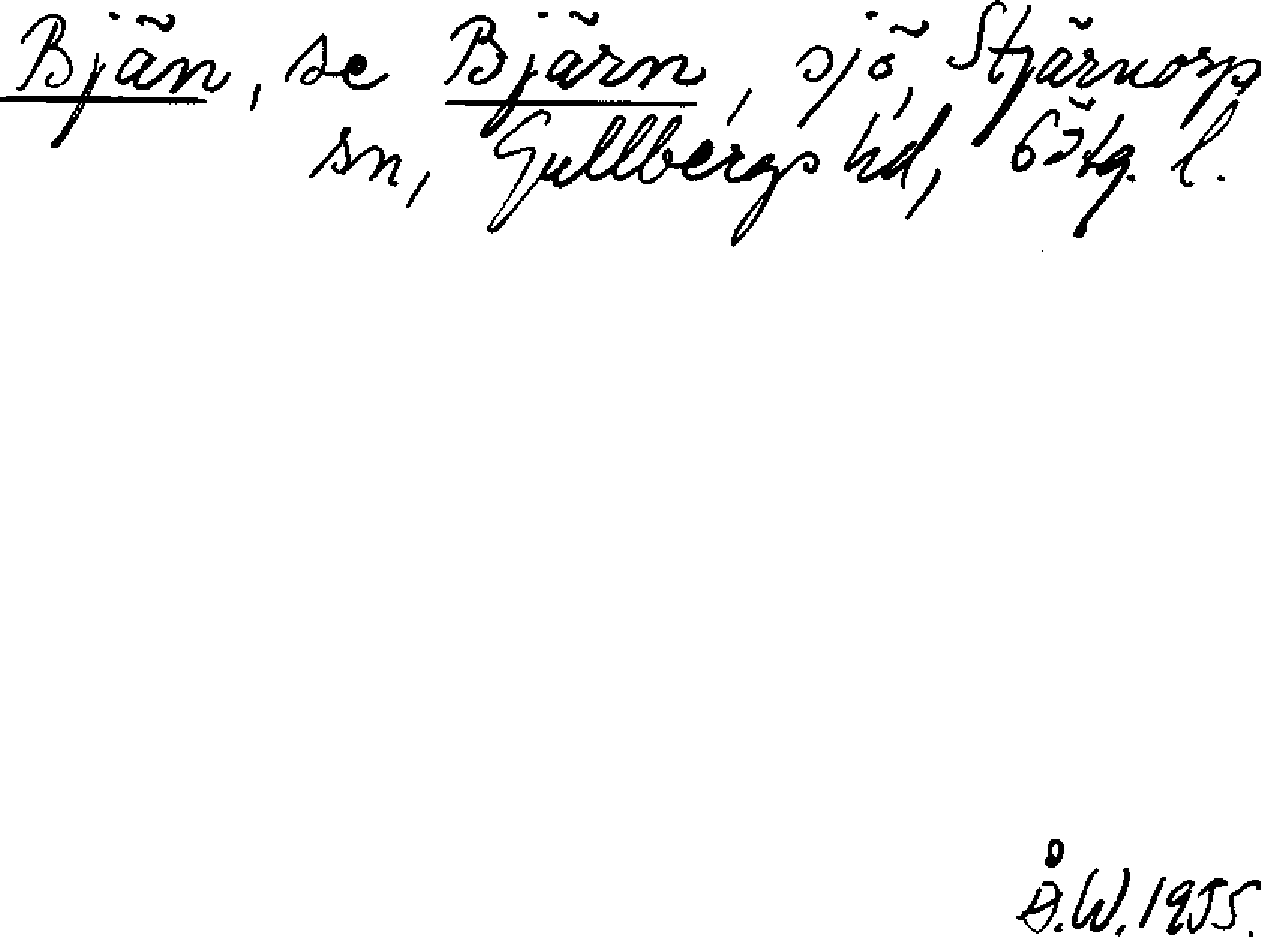 Bjän, se Bjärn, sjö, Stjärnorps
sn, Gullbergs hd, Östg. l.
Å.W. 1955.